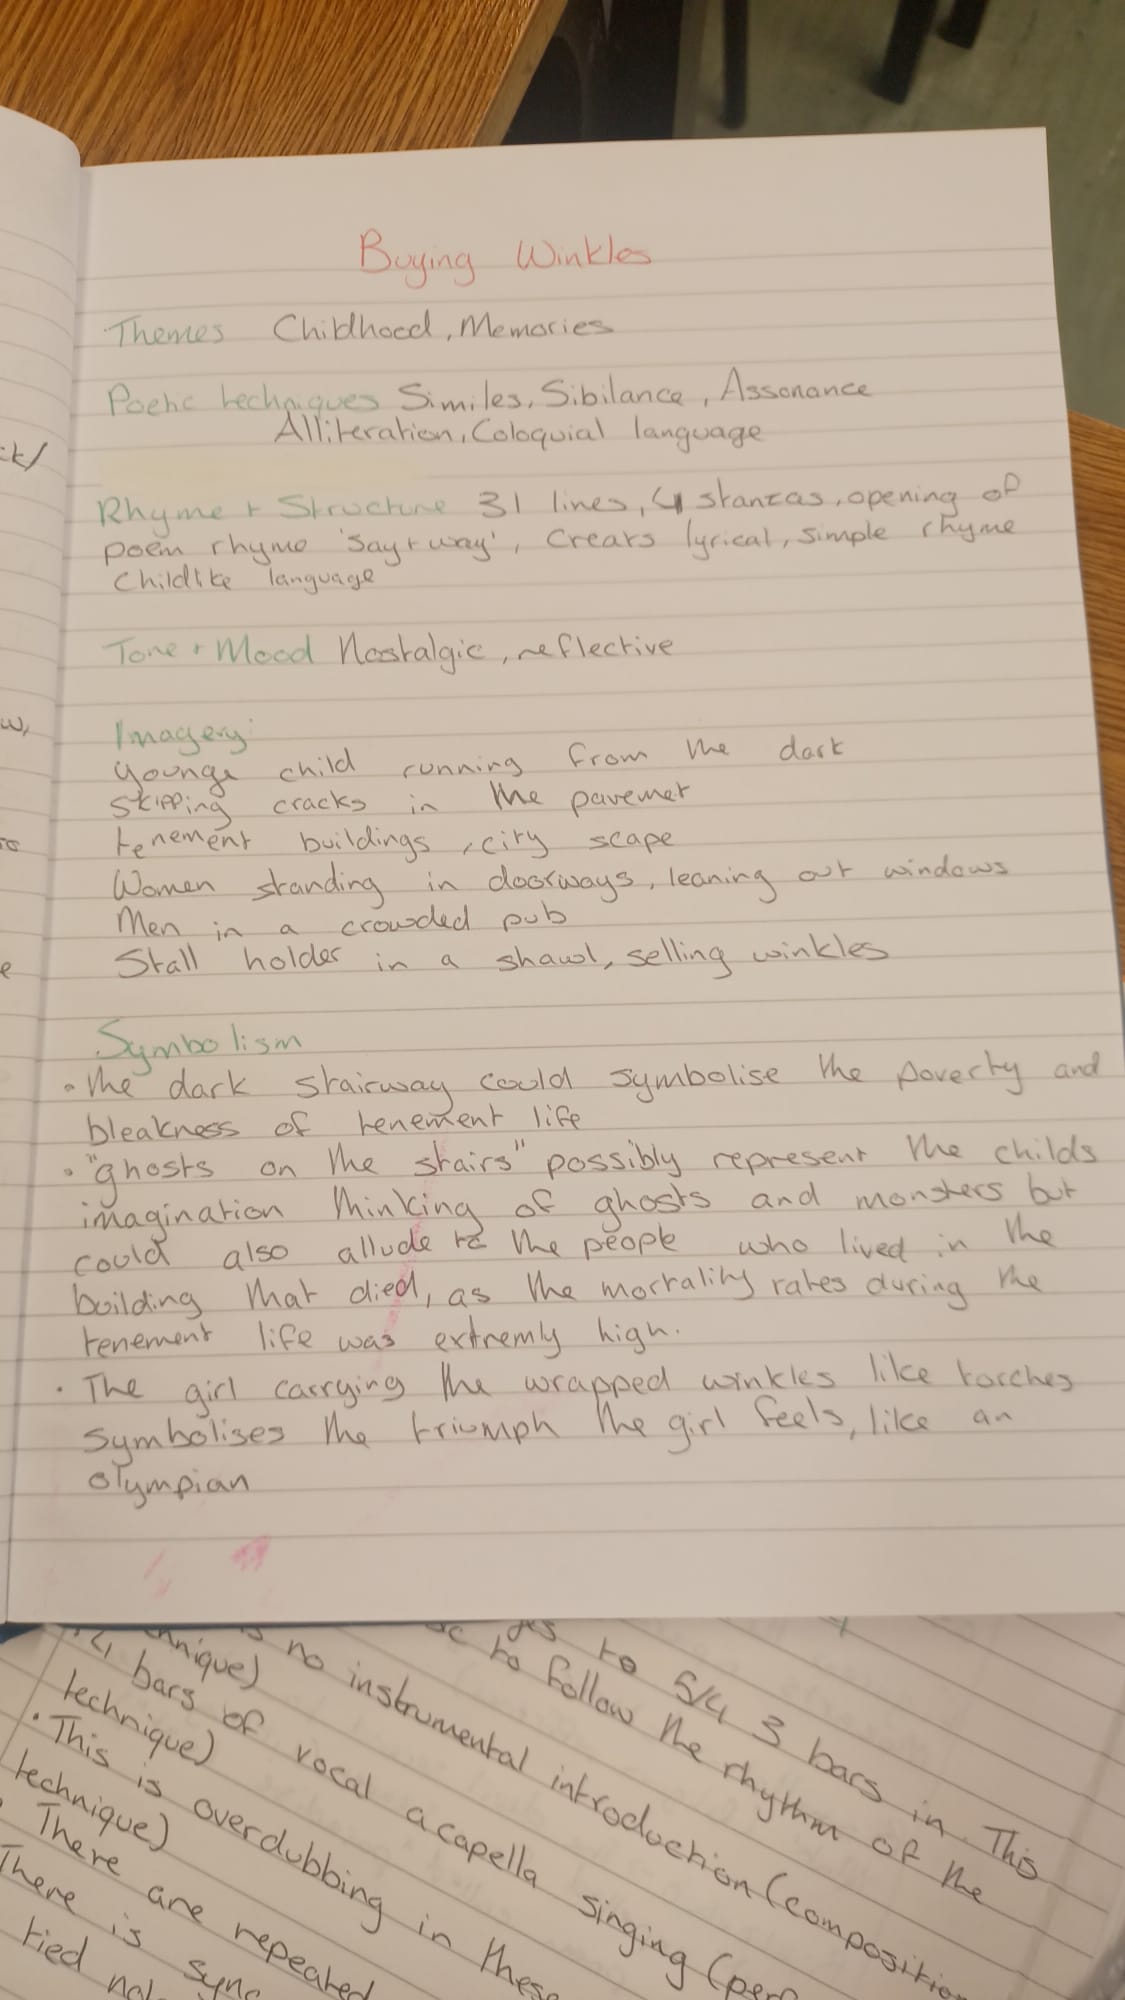 Buying Winkles
Themes Childhood, Memories
Poetic techniques Similes, Sibilance, Assonance
Alliteration, Coloquial language
Rhyme + Structure 31 lines, 4 stanzas, opening of
poem rhyme 'say + way', Crears lyrical, simple rhyme
Childlike language
Tone + Mood Nostalgic, reflective
Imagery
younge child running from the dark
skipping cracks in the pavemet
tenement buildings, city scape
Women standing in doorways, leaning out windows
Men in a crowded pub
Stall holder in a shawl, selling winkles
Symbolism
• the dark stairway could symbolise the poverty and
bleakness of tenement life
• "ghosts on the stairs" possibly represent the childs
imagination thinking of ghosts and monsters but
could also allude to the people who lived in the
building that died, as the mortality rates during the
tenement life was extremly high.
• The girl carrying the wrapped winkles like torches
symbolises the triumph the girl feels, like an
olympian
to 5/4 3 bars in. This
to follow the rhythm of the
no instrumental introduction (composition
bars of vocal acapella singing (perf
technique)
• This is overdubbing in these
technique)
• There are repeated
There is sync
tied not